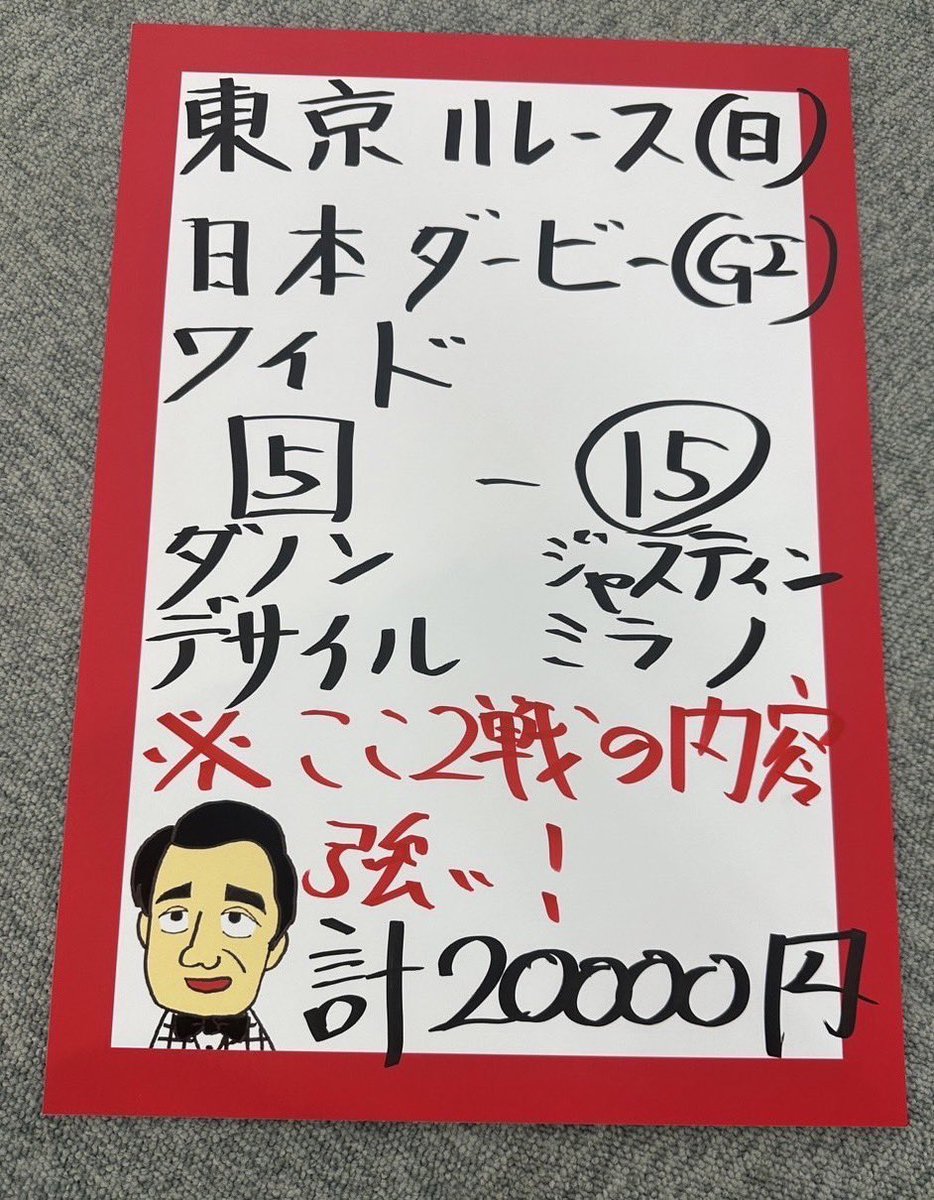 東京11レース(日)
日本ダービー(GI)
ワイド
5 - 15
ダノン ジャスティン
デサイル ミラノ
※ここ2戦の内容
強い!
計20000円